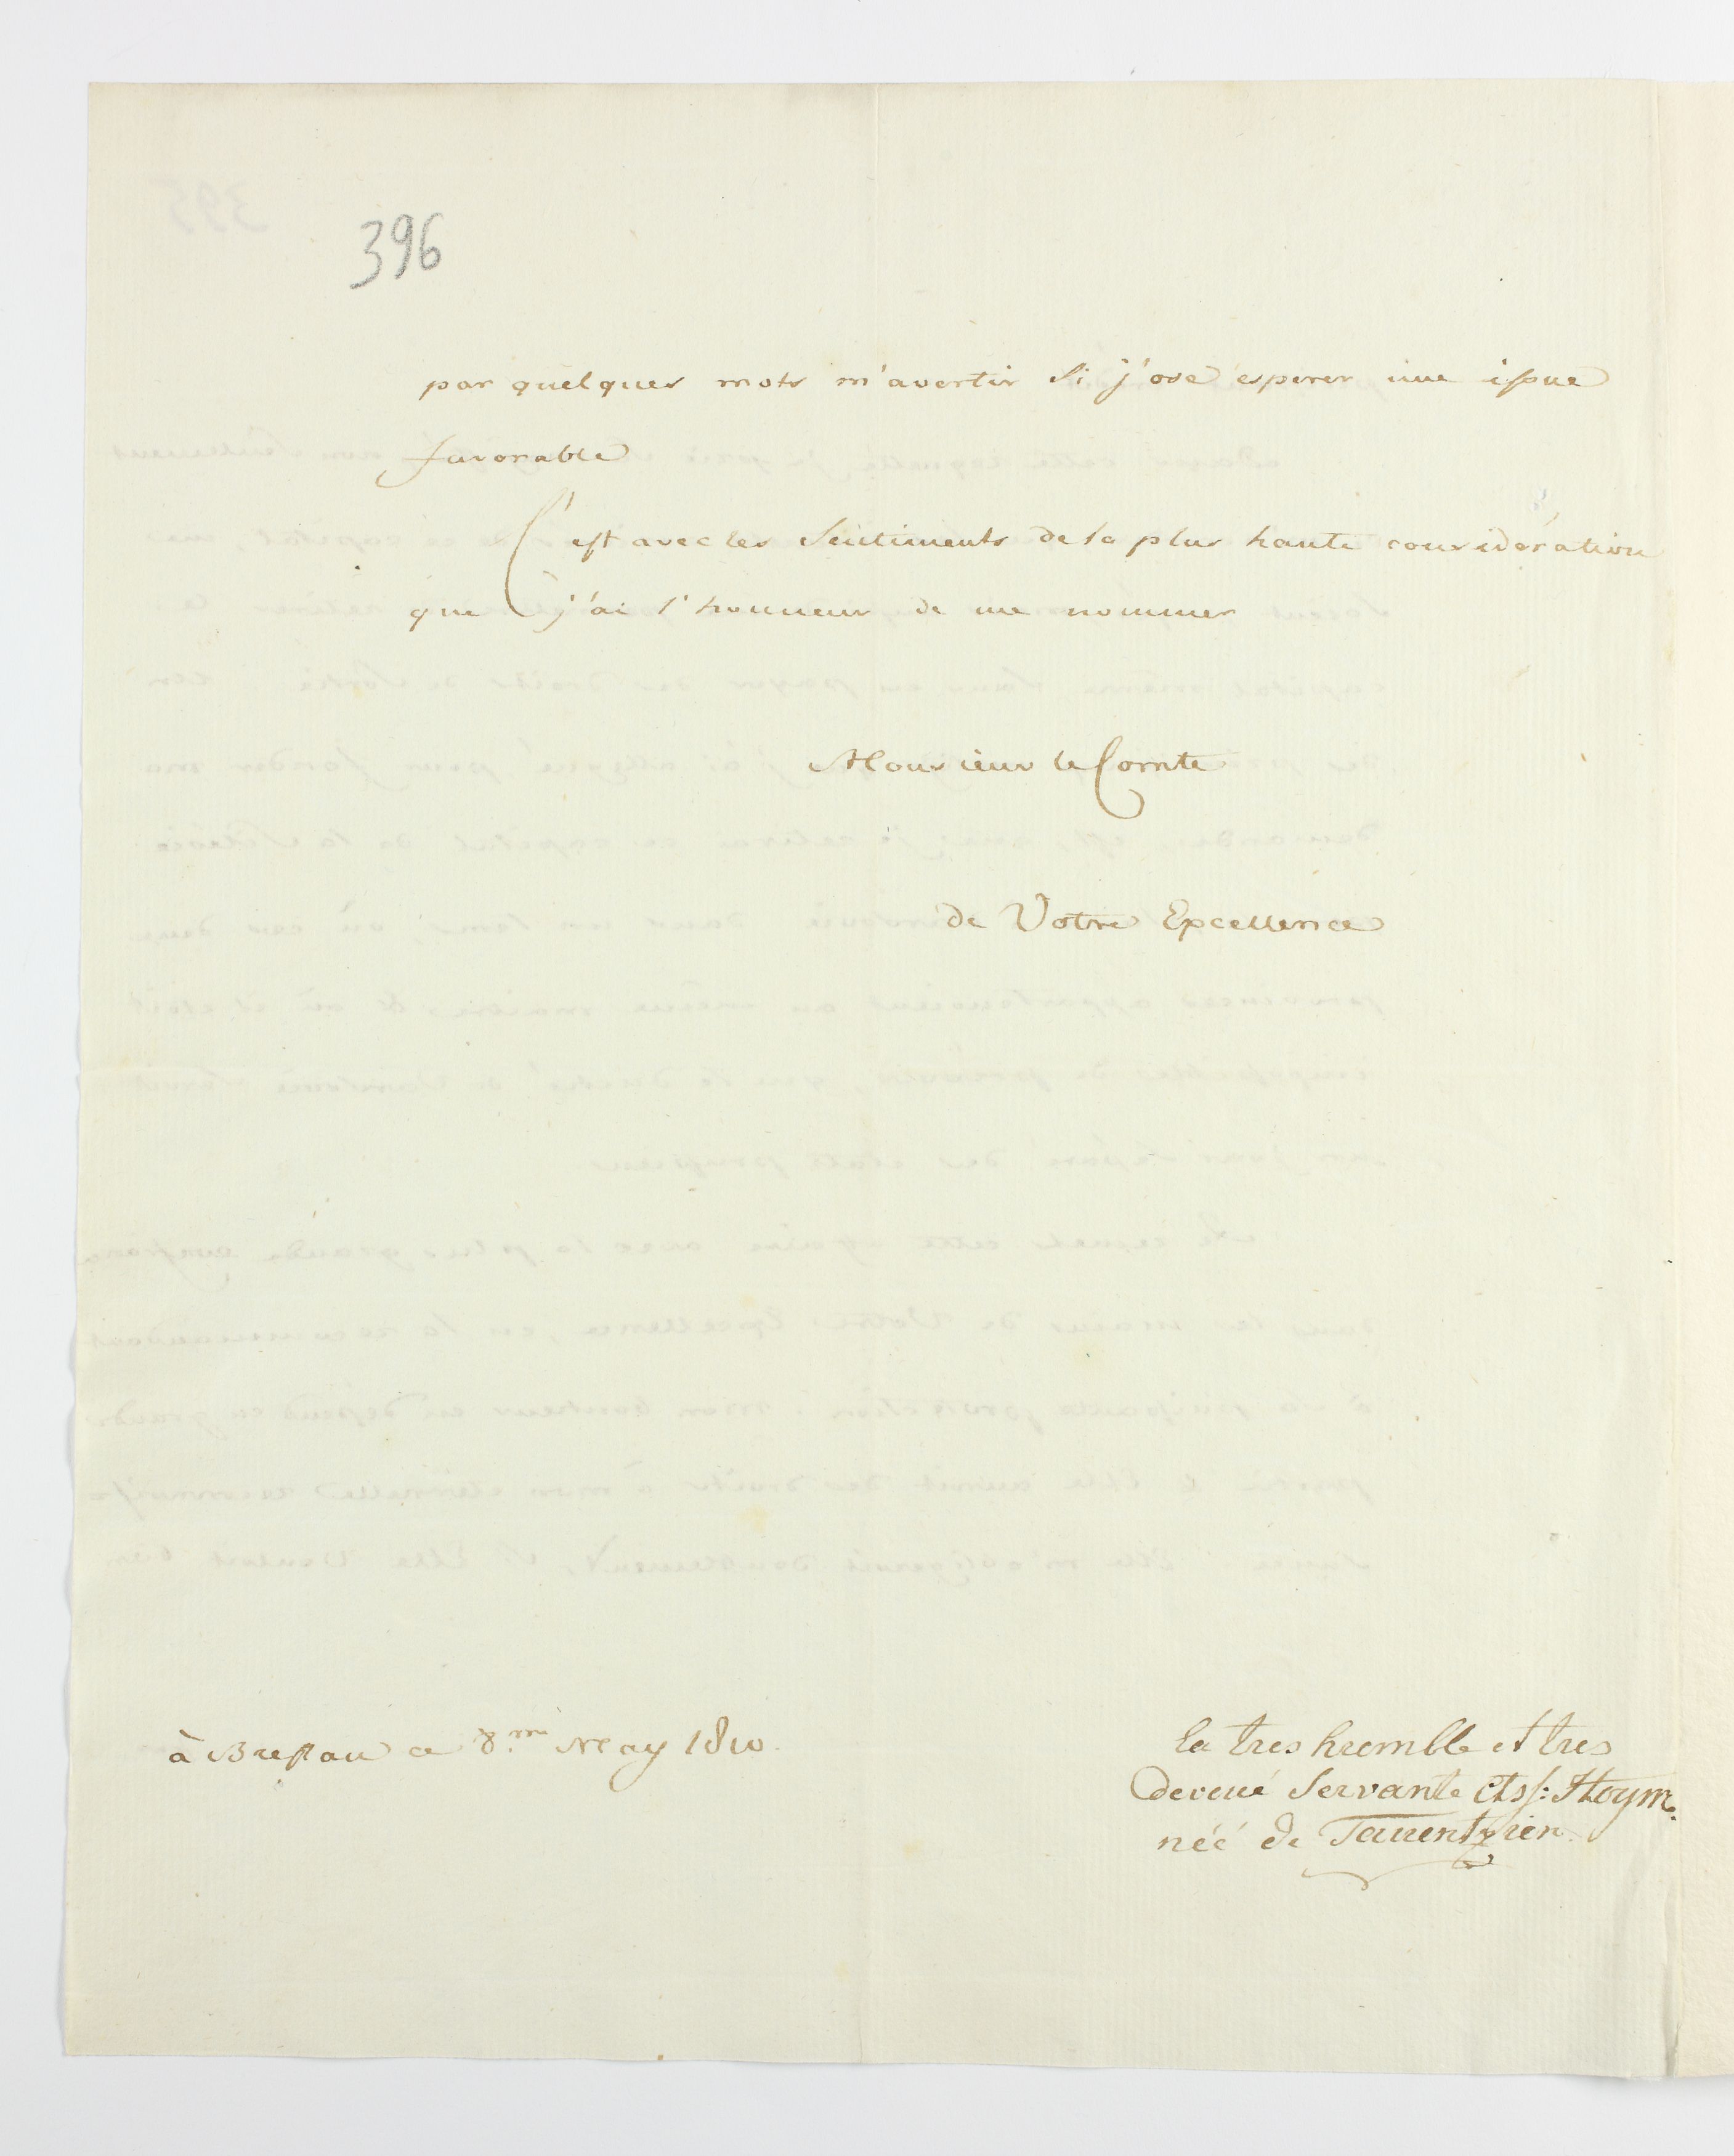 396
par quelques mots m'avertir Si j'ose esperer une issue
favorable
C'est avec les Sentiments de la plus haute considération
que j'ai l'honneur de me nommer
Monsieur le Comte
de Votre Excellence
à Breslau ce 8.me May 1810.
la tres humble et tres
devoué Servante Ctss: Hoym.
néé de Tauentzien